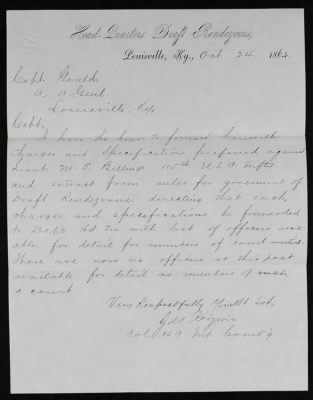 Head-Quarters Draft Rendezvous,
Louisville, Ky., Oct 24 1864.
Capt Gould
A. A Genl.
Louisville Ky
Capt,
I have the honor to forward herewith
charges and specifications preferred against
Lieut M. E. Billings 115th U.S.C. Infty
and extract from rules for goverment of
Draft Rendezvous, directing that such
charges and specifications be forwarded
to Dept Hd Qrs with list of officers avail
able for detail for members of court martial.
There are now no officers at this post
available for detail as members of such
a court
Very Respectfully Obedt Svt,
Col 49 Comd'g